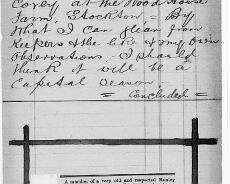 Covey at the Wood House
Farm, Stockton = By
what I can glean from
Keepers & the like & my own
Observations. I should
think it will be a
Capital season.
= Concluded =
A member of a very old and respected Manley